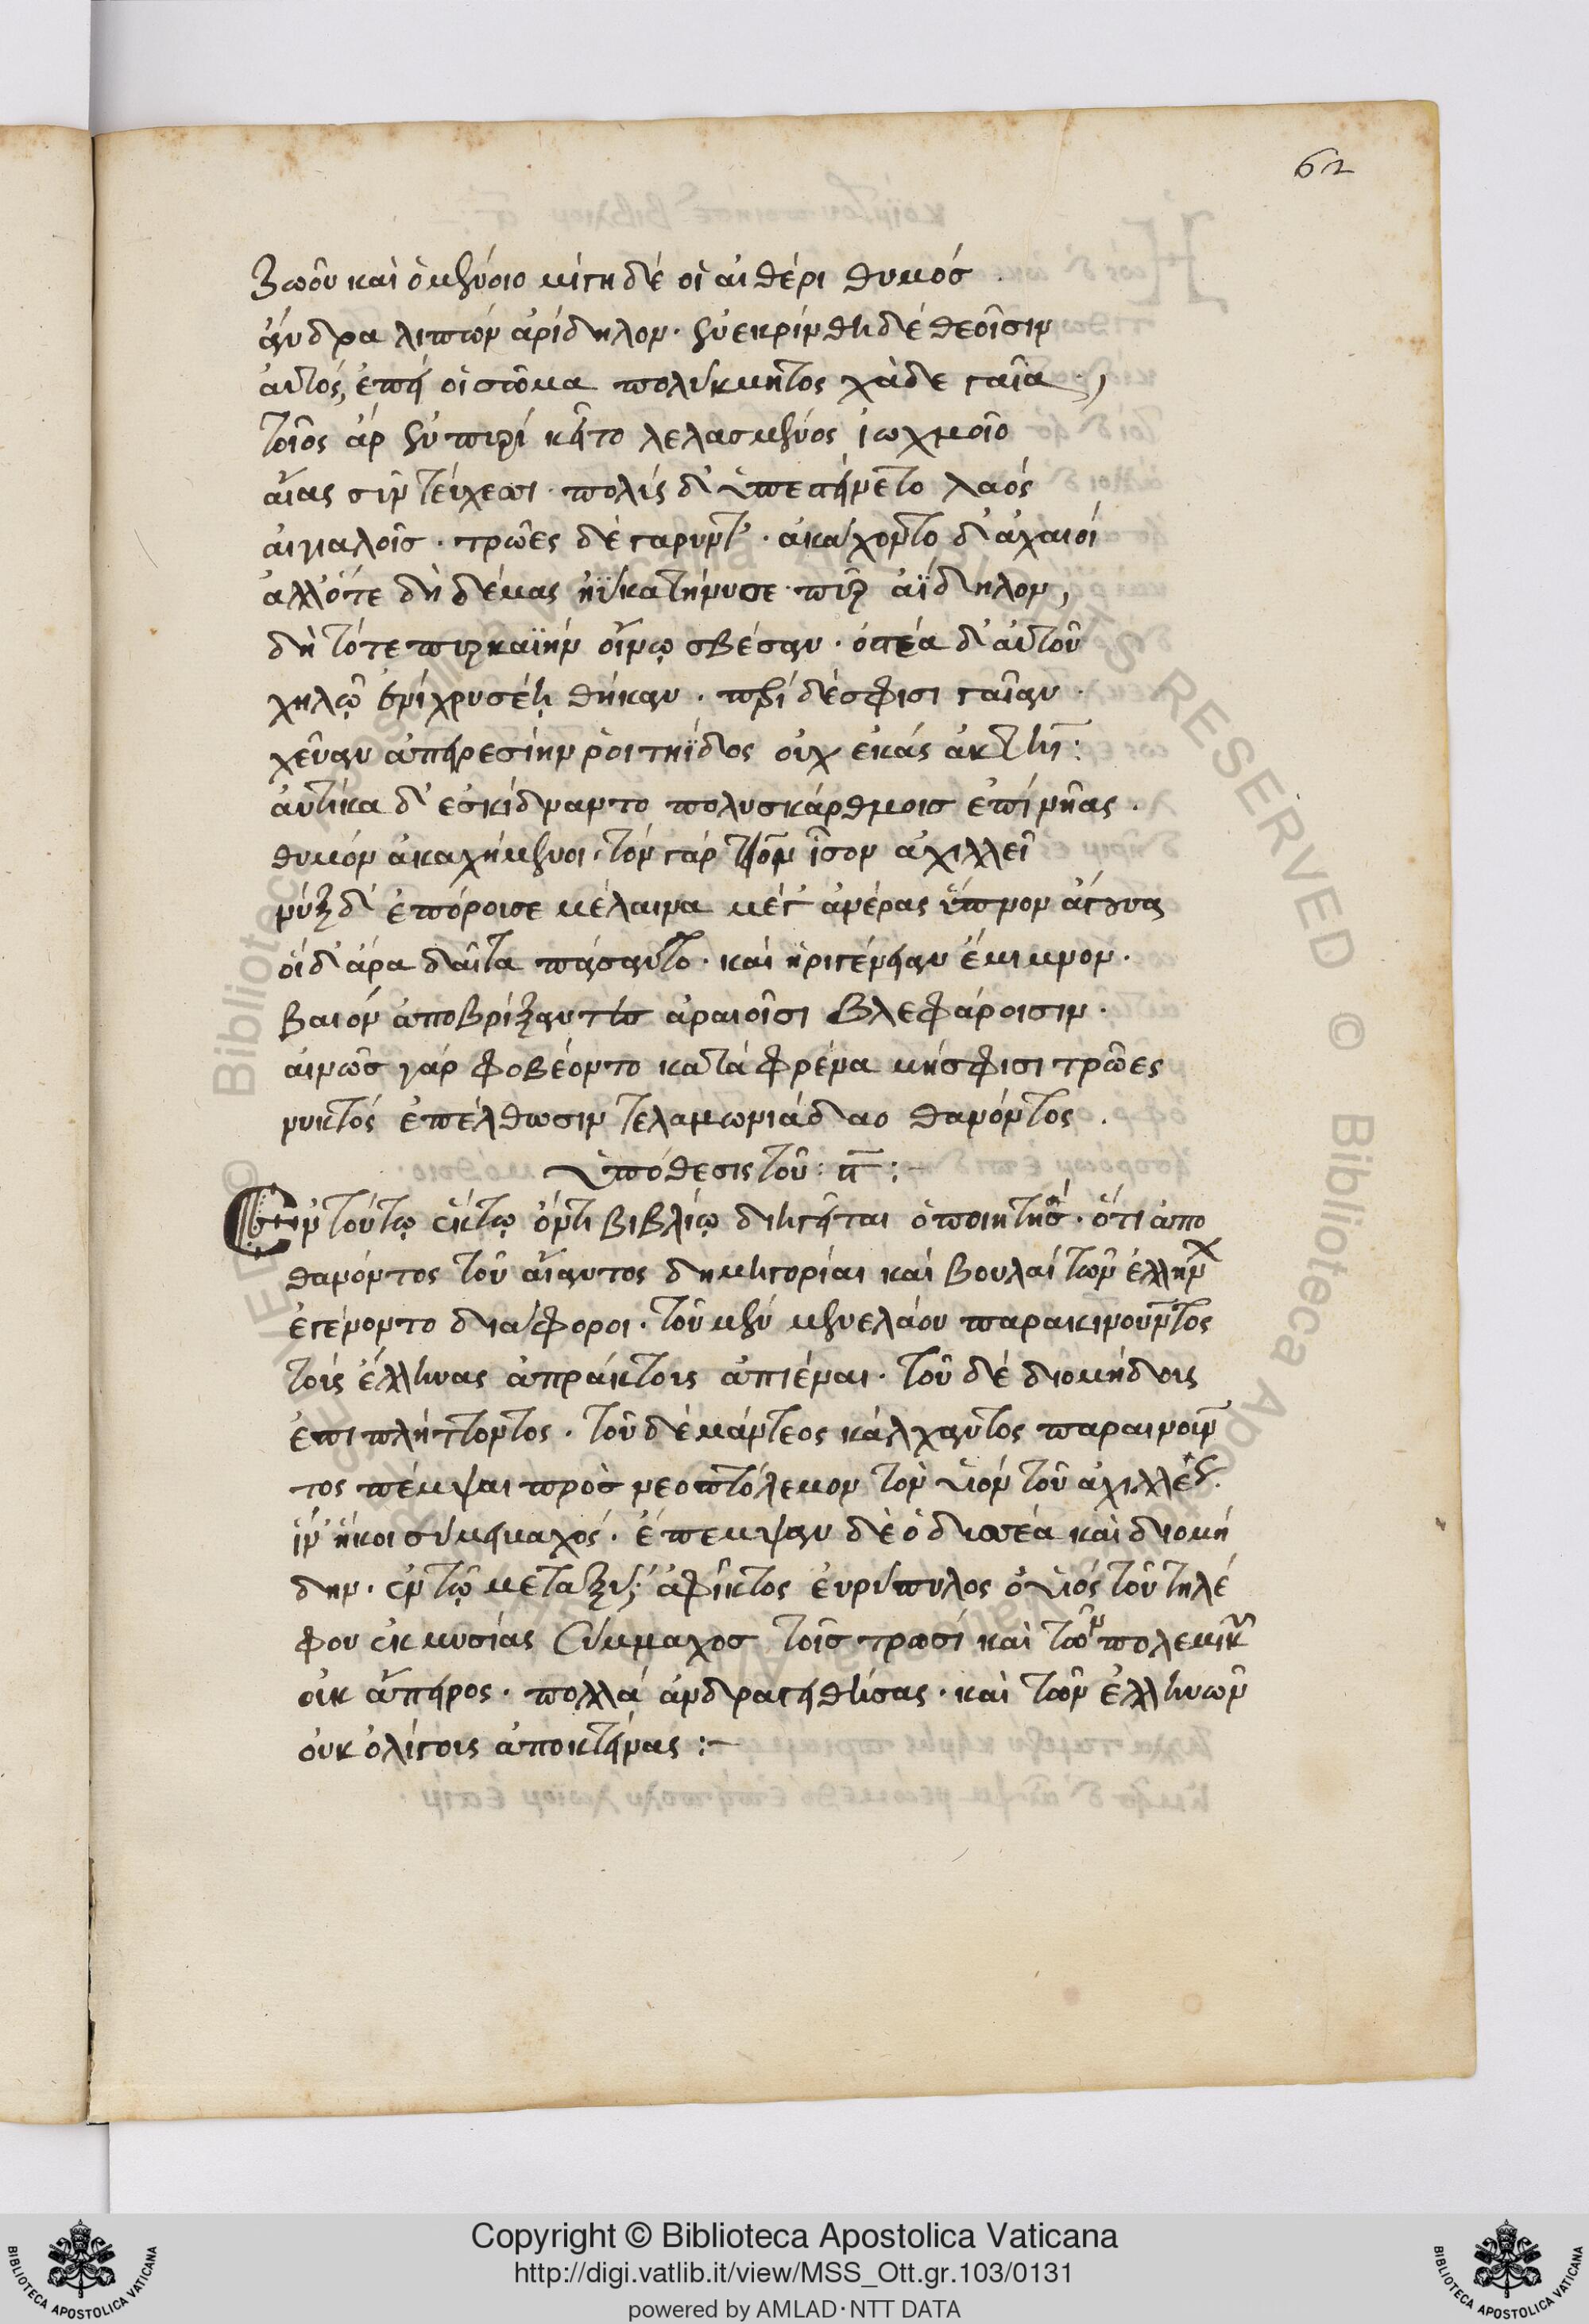 62
ζωοῦ καὶ ὀμένοιο μίγη δέ οἱ αἰθέρι θυμός.
ἄνδρα λιπὼν ἀρίδηλον. ἐνεκρίνθη δὲ θεοῖσιν
αὐτός, ἐπεὶ οἱ στόμα πολύκμητος χάδε γαῖα.,
τοῖος ἄρ ἐν πυρὶ κεῖτο λελασμένος ἰωχμοῖο
αἴας σὺν τεύχεσι. πολὺς δ' ὑπεπείνετο λαός
αἰγιαλοῖσ. τρῶες δὲ γάρυντ'. ἀκάχοντο δ' ἀχαιοί
ἀλλ' ὅτε δὴ δέμας ἠῢ κατήνυσε πῦρ ἀΐδηλον,
δὴ τότε πυρκαϊὴν οἴνῳ σβέσαν. ὀστέα δ' αὐτοῦ
χηλῷ ἐνὶ χρυσέῃ θήκαν. περὶ δέ σφισι γαῖαν.
χεῦαν ἀπειρεσίην ῥοιτηΐδος οὐχ ἑκὰς ἀκτῆς:
αὐτίκα δ' ἐσκίδναντο πολυσκάρθμοισ ἐπὶ νῆας.
θυμὸν ἀκαχήμενοι. τὸν γὰρ τίον ἶσον ἀχιλλεῖ
νὺξ δ' ἐπόρουσε μέλαινα μέγ' ἀνέρας ὕπνον ἄγουσα
οἱ δ' ἄρα δαῖτα πάσαντο. καὶ ἠριγένειαν ἔμιμνον.
βαιὸν ἀποβρίξαντες ἀραιοῖσι βλεφάροισιν.
αἰνῶσ γὰρ φοβέοντο κατὰ φρένα μή σφισι τρῶες
νυκτὸς ἐπέλθωσιν τελαμωνιάδαο θανόντος.
ὑπόθεσις τοῦ: π :-
Ἐν τούτῳ ἕκτῳ ὄντι βιβλίῳ διηγεῖται ὁ ποιητής. ὅτι ἀπο
θανόντος τοῦ αἴαντος δημηγορίαι καὶ βουλαὶ τῶν ἑλλήν
ἐγένοντο διάφοροι. τοῦ μὲν μενελάου παρακινοῦντος
τοὺς ἕλληνας ἀπράκτους ἀπιέναι. τοῦ δὲ διομήδους
ἐπιπλήττοντος. τοῦ δὲ μάντεος κάλχαντος παραινοῦν
τος πέμψαι πρὸσ νεοπτόλεμον τὸν υἱὸν τοῦ ἀχιλλέως.
ἵν' ἥκοι σύμμαχος. ἔπεμψαν δὲ ὀδυσσέα καὶ διομή
δην. ἐν τῷ μεταξὺ, ἀφῖκτος εὐρύπυλος ὁ υἱὸς τοῦ τηλέ
φου ἐκ μυσίας σύμμαχοσ τοῖσ τρωσὶ καὶ τῶν πολεμικῶν
οὐκ ἄπειρος. πολλὰ ἀνδραγηθήσας. καὶ τῶν ἑλλήνων
οὐκ ὀλίγους ἀποκτείνας :-
Copyright © Biblioteca Apostolica Vaticana
http://digi.vatlib.it/view/MSS_Ott.gr.103/0131
powered by AMLAD·NTT DATA